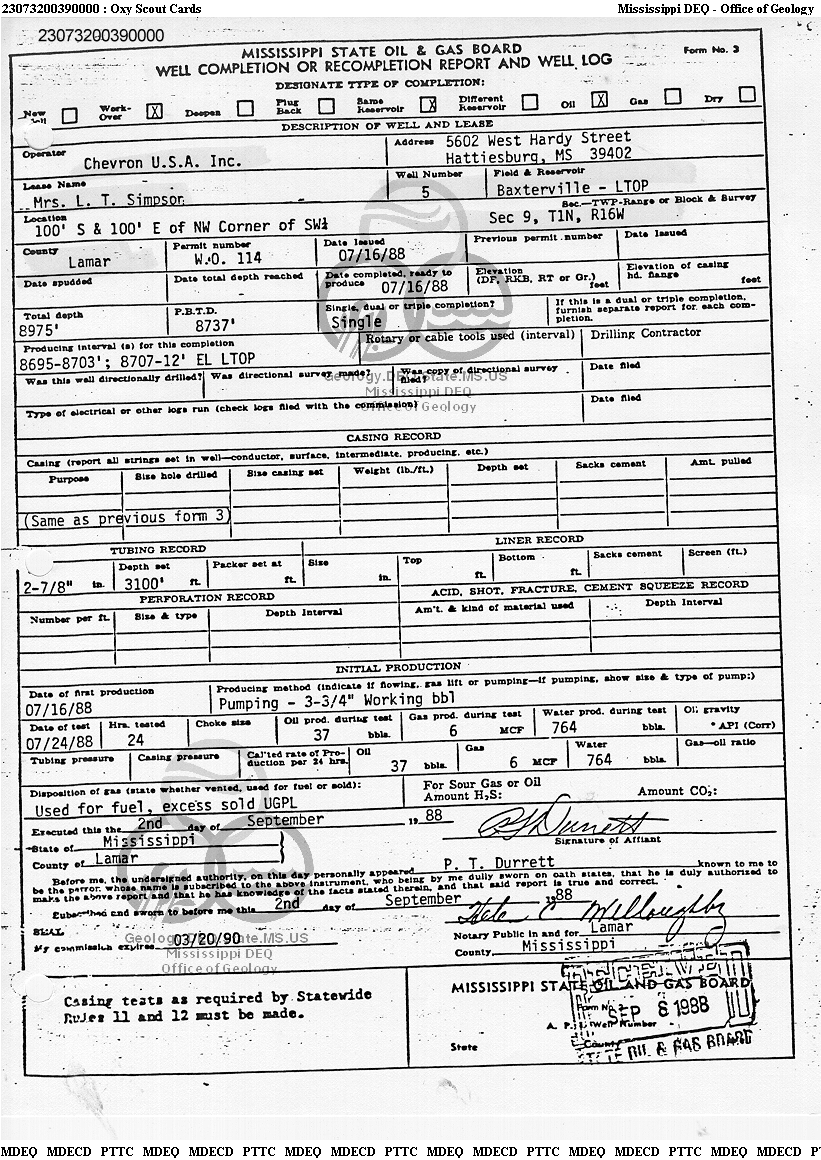 23073200390000 : Oxy Scout Cards Mississippi DEQ - Office of Geology
23073200390000
MISSISSIPPI STATE OIL & GAS BOARD Form No. 3
WELL COMPLETION OR RECOMPLETION REPORT AND WELL LOG
DESIGNATE TYPE OF COMPLETION:
New Well Work-Over X Deepen Plug Back Same Reservoir X Different Reservoir Oil X Gas Dry
DESCRIPTION OF WELL AND LEASE
Operator Chevron U.S.A. Inc. Address 5602 West Hardy Street
Hattiesburg, MS 39402
Lease Name Mrs. L. T. Simpson Well Number 5 Field & Reservoir Baxterville - LTOP
Location 100' S & 100' E of NW Corner of SW¼ Sec.—TWP-Range or Block & Survey Sec 9, T1N, R16W
County Lamar Permit number W.O. 114 Date Issued 07/16/88 Previous permit number Date Issued
Date spudded Date total depth reached Date completed, ready to produce 07/16/88 Elevation (DF, RKB, RT or Gr.) feet Elevation of casing hd. flange feet
Total depth 8975' P.B.T.D. 8737' Single, dual or triple completion? Single If this is a dual or triple completion, furnish separate report for each completion.
Producing interval (s) for this completion 8695-8703'; 8707-12' EL LTOP Rotary or cable tools used (interval) Drilling Contractor
Was this well directionally drilled? Was directional survey made? Was copy of directional survey filed? Date filed
Geology.DEQ.State.MS.US
Mississippi DEQ
Office of Geology
Type of electrical or other logs run (check logs filed with the commission) Date filed
CASING RECORD
Casing (report all strings set in well—conductor, surface, intermediate, producing, etc.)
Purpose Size hole drilled Size casing set Weight (lb./ft.) Depth set Sacks cement Amt. pulled
(Same as previous form 3)
TUBING RECORD LINER RECORD
2-7/8" in. Depth set 3100' ft. Packer set at ft. Size in. Top ft. Bottom ft. Sacks cement Screen (ft.)
PERFORATION RECORD ACID, SHOT, FRACTURE, CEMENT SQUEEZE RECORD
Number per ft. Size & type Depth Interval Am't. & kind of material used Depth Interval
INITIAL PRODUCTION
Date of first production 07/16/88 Producing method (indicate if flowing, gas lift or pumping—if pumping, show size & type of pump:)
Pumping - 3-3/4" Working bbl
Date of test 07/24/88 Hrs. tested 24 Choke size Oil prod. during test 37 bbls. Gas prod. during test 6 MCF Water prod. during test 764 bbls. Oil gravity ° API (Corr)
Tubing pressure Casing pressure Cal'ted rate of Production per 24 hrs. Oil 37 bbls. Gas 6 MCF Water 764 bbls. Gas—oil ratio
Disposition of gas (state whether vented, used for fuel or sold): For Sour Gas or Oil
Used for fuel, excess sold UGPL Amount H₂S: Amount CO₂:
Executed this the 2nd day of September 1988 P T Durrett
State of Mississippi Signature of Affiant
County of Lamar
Before me, the undersigned authority, on this day personally appeared P. T. Durrett known to me to
be the person whose name is subscribed to the above instrument, who being by me dully sworn on oath states, that he is duly authorized to
make the above report and that he has knowledge of the facts stated therein, and that said report is true and correct.
Subscribed and sworn to before me this 2nd day of September 1988
SEAL Notary Public in and for Lamar
My commission expires 03/20/90 County, Mississippi
Geology.DEQ.State.MS.US
Mississippi DEQ
Office of Geology
Casing tests as required by Statewide
Rules 11 and 12 must be made.
MISSISSIPPI STATE OIL AND GAS BOARD
Form No. 3
SEP 8 1988
A. P. I. Well Number
State County
STATE OIL & GAS BOARD
MDEQ MDECD PTTC MDEQ MDECD PTTC MDEQ MDECD PTTC MDEQ MDECD PTTC MDEQ MDECD PTTC MDEQ MDECD P